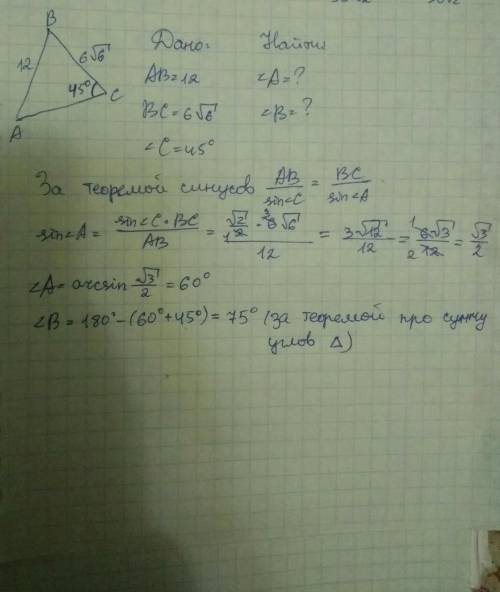 B
12
6√6
45°
A
C
Дано:
AB=12
BC=6√6
∠C=45°
Найти:
∠A=?
∠B=?
За теоремой синусов AB/sin∠C = BC/sin∠A
sin∠A = sin∠C·BC/AB = (√2/2·6√6)/12 = 3√12/12 = 6√3/12 = √3/2
∠A=arcsin √3/2 = 60°
∠B=180°-(60°+45°)=75° (за теоремой про сумму
углов Δ)